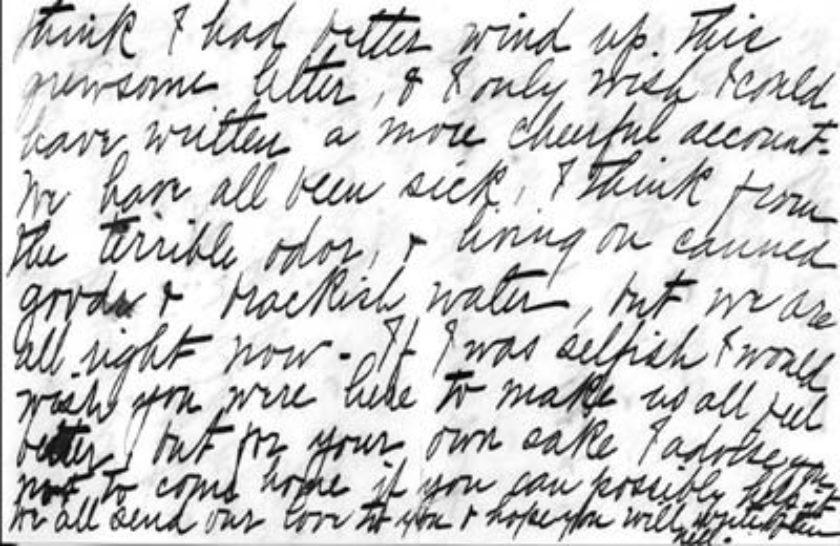 think I had better wind up this
grewsome letter, & I only wish I could
have written a more cheerful account-
We have all been sick, I think from
the terrible odor, & living on canned
goods & brackish water, but we are
all right now - If I was selfish I would
wish you were here to make us all feel
better, but for your own sake I advise you
not to come home if you can possibly help it-
We all send our love to you & hope you will write often
Nell.